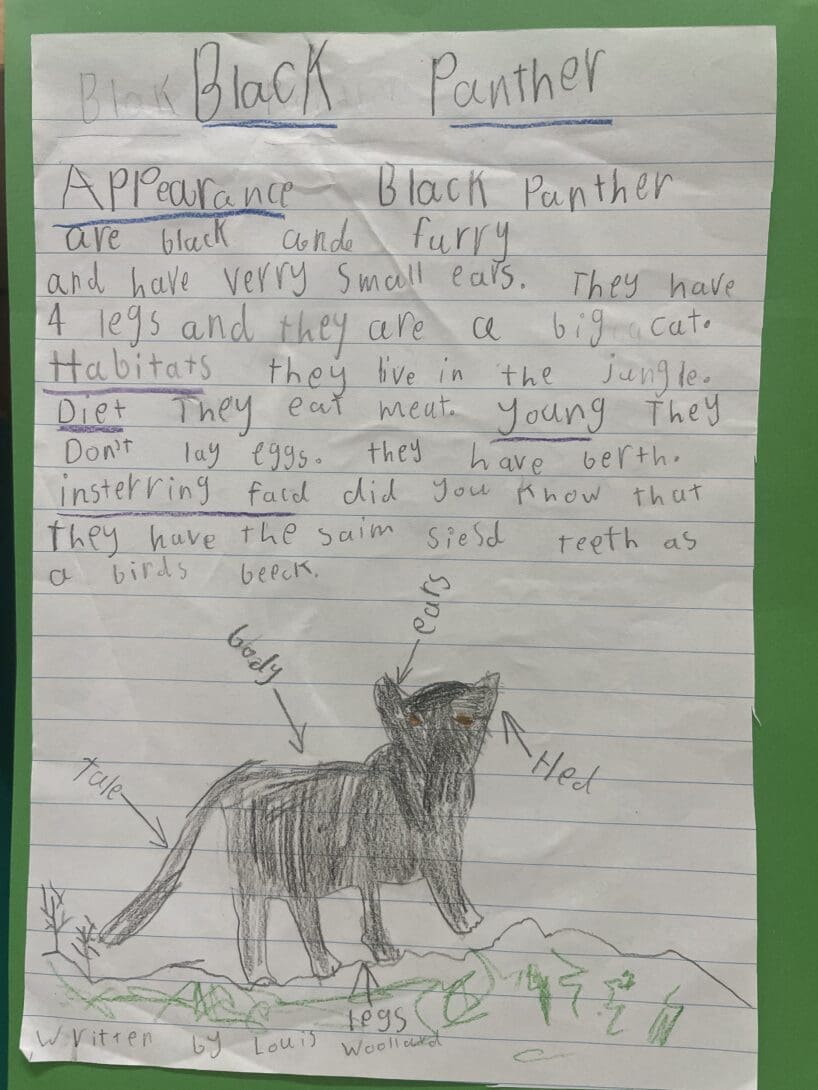 Blak Black Panther
Appearance Black Panther
are black ande furry
and have verry small ears. They have
4 legs and they are a big cat.
Habitats they live in the jungle.
Diet They eat meat. young They
Don't lay eggs. they have berth.
insterring facd did you know that
they have the saim siesd teeth as
a birds beeck.
ears
body
Hed
tale
legs
Written by Louis Woollard